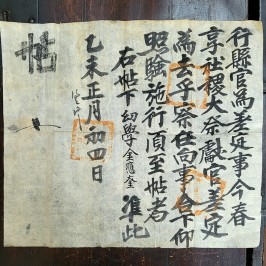 行縣官爲差定事今春
享社稷大祭獻官差定
爲去乎察任向事合下仰
照驗施行須至帖者
右帖下幼學金應奎 準此
乙未正月初四日
帖